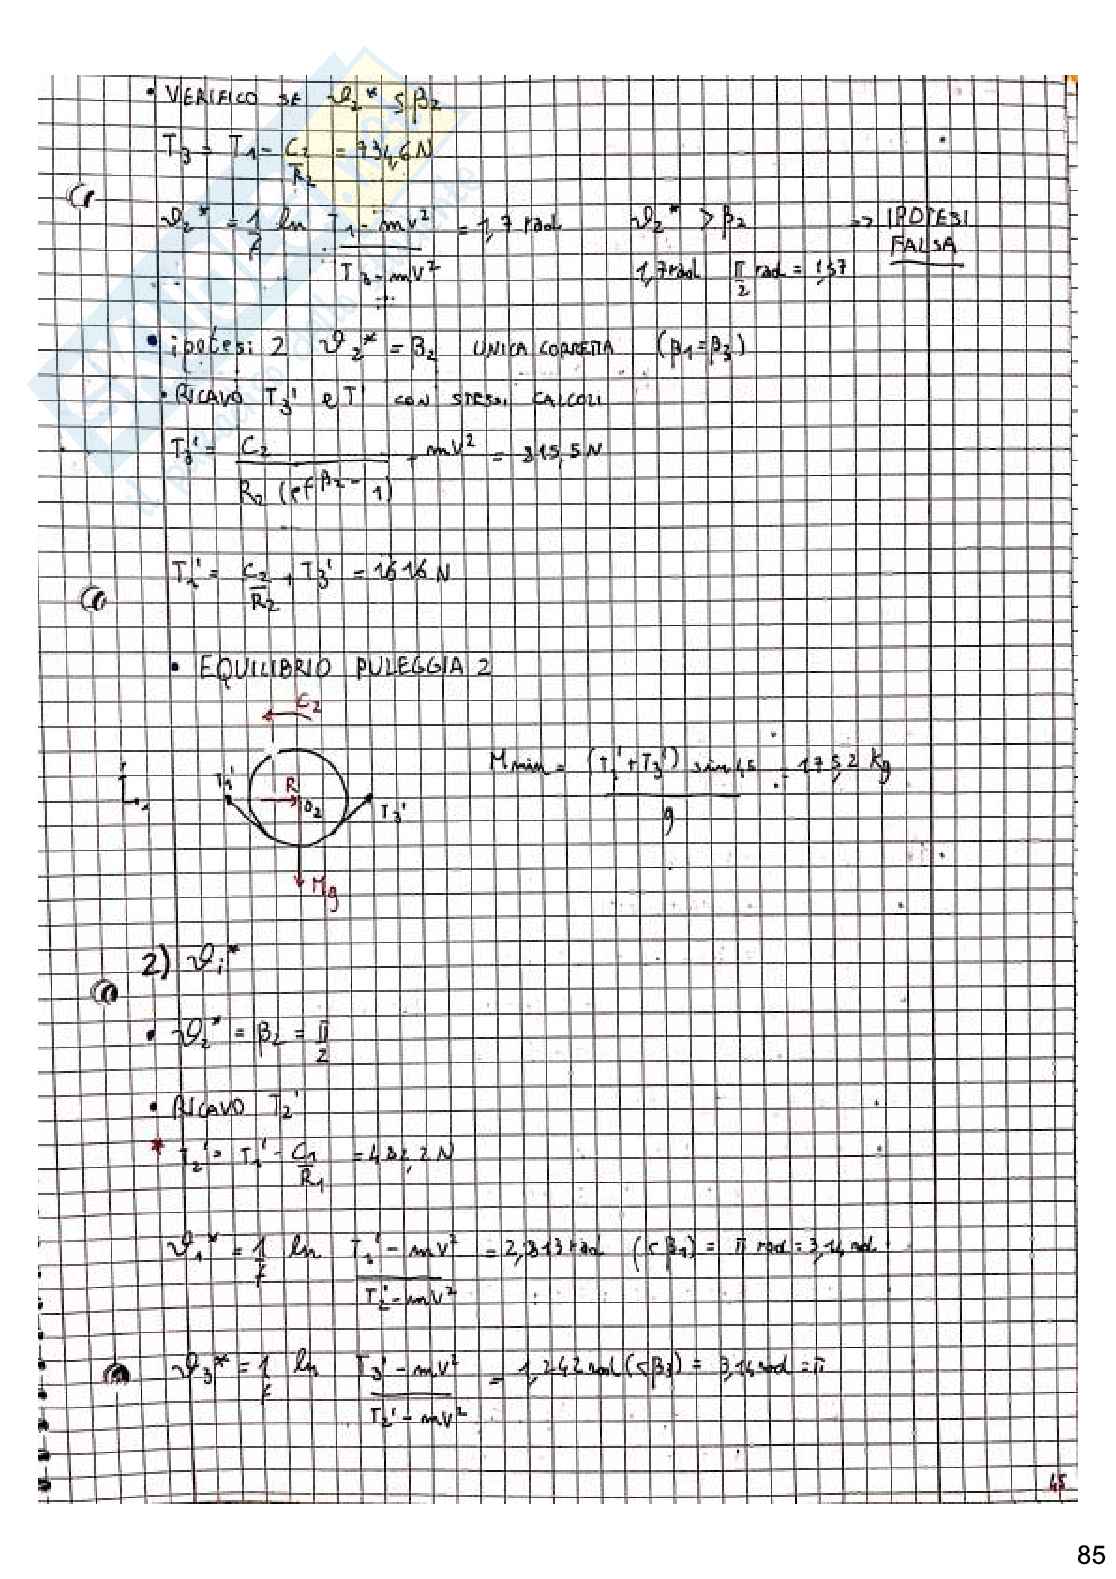 • VERIFICO SE ϑ2* ≤ β2
T3 = T1 - C2/R2 = 734,6 N
ϑ2* = 1/f ln (T1 - mv²)/(T3 - mv²) = 1,7 rad    ϑ2* > β2    => IPOTESI FALSA
1,7 rad    π/2 rad = 1,57
• ipotesi 2    ϑ2* = β2    UNICA CORRETTA    (β1=β3)
• RICAVO T3' e T' CON STESSI CALCOLI
T3' = C2/(R2 (e^fβ2 - 1)) - mv² = 815,5 N
T1' = C2/R2 + T3' = 1616 N
• EQUILIBRIO PULEGGIA 2
C2
Mmin = (T1' + T3') sin 45 / g = 175,2 kg
T1' R O2 T3'
Mg
2) ϑi*
• ϑ2* = β2 = π/2
• RICAVO T2'
* T2' = T1' - C1/R1 = 482,2 N
ϑ1* = 1/f ln (T1' - mv²)/(T2' - mv²) = 2,813 rad (< β1) = π rad = 3,14 rad
ϑ3* = 1/f ln (T3' - mv²)/(T2' - mv²) = 1,242 rad (< β3) = 3,14 rad = π
45
85